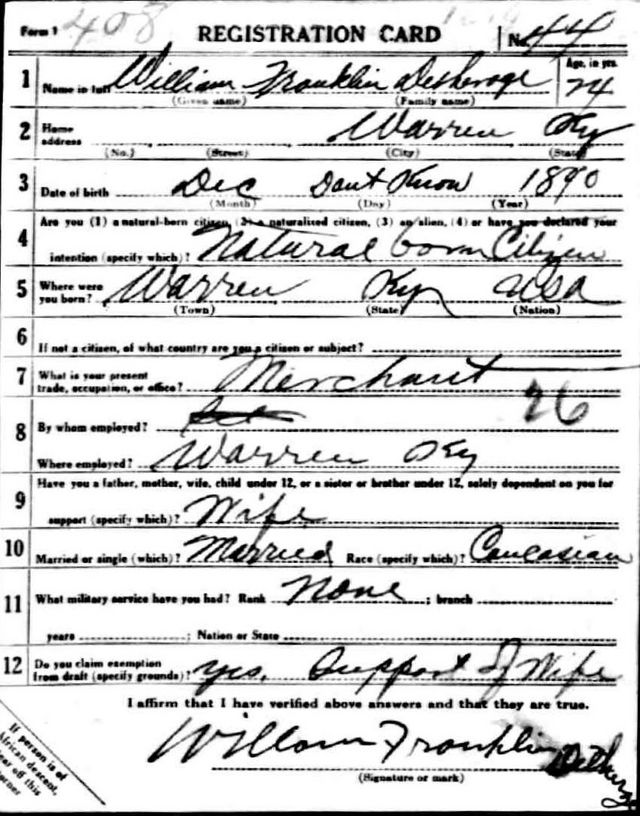 Form 1 408 REGISTRATION CARD No. 44
1 Name in full William Franklin Age, in yrs.
(Given name) (Family name)
2 Home address Warren Ky
(No.) (Street) (City) (State)
3 Date of birth Dec Dont Know 1890
(Month) (Day) (Year)
Are you (1) a natural-born citizen, (2) a naturalized citizen, (3) an alien, (4) or have you declared your
4 intention (specify which)? Natural born Citizen
5 Where were you born? Warren Ky USA
(Town) (State) (Nation)
6 If not a citizen, of what country are you a citizen or subject?
7 What is your present trade, occupation, or office? Merchant
26
8 By whom employed?
Where employed? Warren Ky
9 Have you a father, mother, wife, child under 12, or a sister or brother under 12, solely dependent on you for
support (specify which)? Wife
10 Married or single (which)? Married Race (specify which)? Caucasian
11 What military service have you had? Rank None ; branch
years ; Nation or State
12 Do you claim exemption from draft (specify grounds)? yes. Support of Wife
I affirm that I have verified above answers and that they are true.
William Franklin
(Signature or mark)
If person is of
African descent,
tear off this
corner